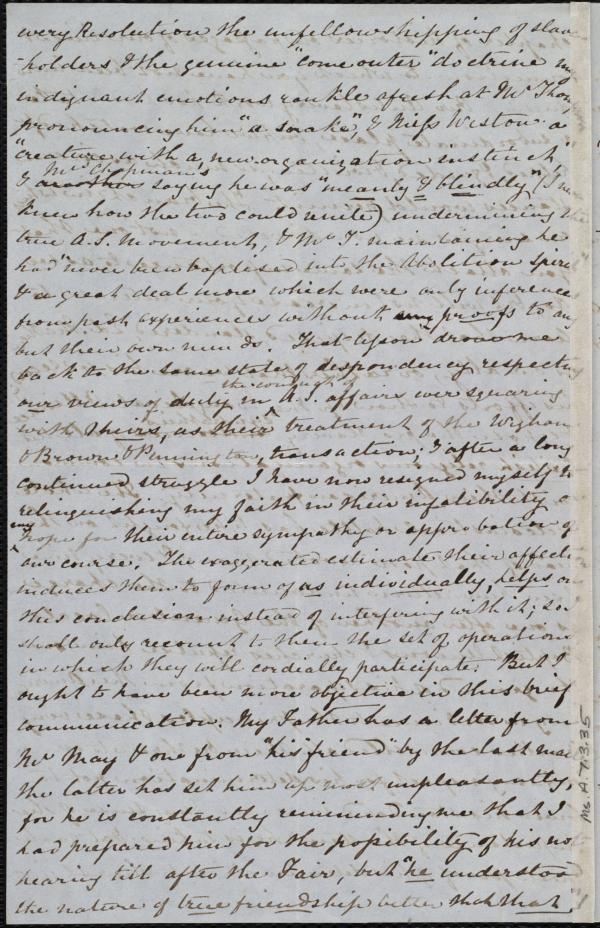 every Resolution the unfellowshipping of slave
-holders & the genuine "come outer" doctrine my
indignant emotions rankle afresh at Mr Thom
pronouncing him "a snake", & Miss Weston a
"creature with a new organization instinct",
Mrs Chapman's
& saying he was "meanly & blindly" (I
knew how the two could unite) undermining the
true A.S. Movement, & Mr T. maintaining he
had "never been baptised into the Abolition spirit
& a great deal more which were only inferences
from past experiences without any proofs to any
but their own minds. That lesson drove me
back to the same state of despondency respecting
the concerning of
our views of duty in A.S. affairs ever squaring
with theirs, as their treatment of the Wigham
& Brown & Pennington, transaction; & after a long
continued struggle I have now resigned myself to
relinquishing my faith in their infalibility &
my hope for their entire sympathy or approbation of
our course. The exaggerated estimate their affection
induces them to form of us individually, helps on
this conclusion instead of interfering with it; so I
shall only recount to them the set of operations
in which they will cordially participate. But I
ought to have been more objective in this brief
communication. My Father has a letter from
Mr May & one from "his friend" by the last mail
the latter has set him up most unpleasantly,
for he is constantly reminding me that I
had prepared him for the possibility of his not
hearing till after the Fair, but "he understood
the nature of true friendship better than that."
Ms A.7.3.35